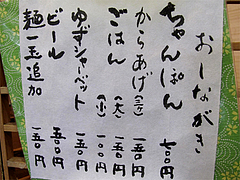 おしながき
ちゃんぽん 七〇〇円
からあげ(三ケ) 一五〇円
ごはん(大) 一五〇円
(小) 一〇〇円
ゆずシャーベット 一五〇円
ビール 五〇〇円
麺一玉追加 一五〇円